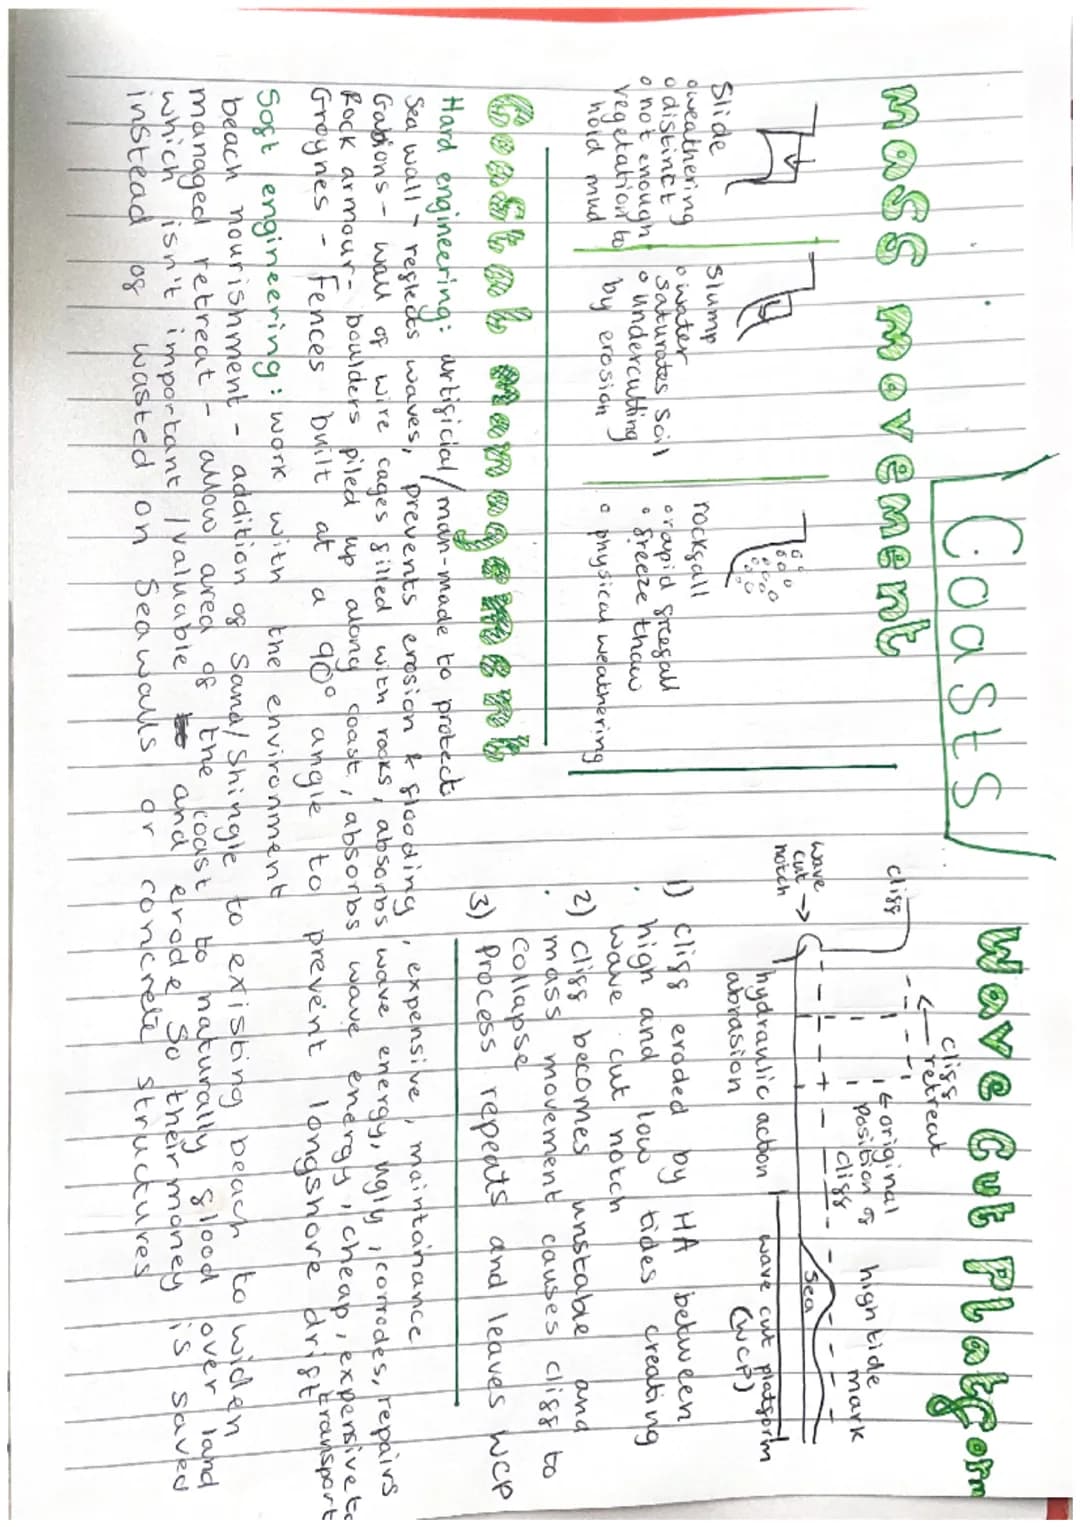 Coasts
mass movement
Slide
o weathering
o distinct
o not enough
vegetation to
hold mud
Slump
o water
saturates soil
o undercutting
by erosion
rockfall
o rapid freefall
o freeze thaw
o physical weathering
Wave Cut Platform
cliff
cliff
retreat
original
position of
cliff
high tide
mark
wave
cut
notch
Sea
hydraulic action
abrasion
wave cut platform
(WCP)
1) cliff eroded by HA between
high and low tides creating
wave cut notch
2) cliff becomes unstable and
mass movement causes cliff to
collapse
3) Process repeats and leaves WCP
Coastal management
Hard engineering: artificial/man-made to protect
Sea wall - reflects waves, prevents erosion & flooding, expensive, maintainance
Gabions - wall of wire cages filled with rocks, absorbs wave energy, ugly, corrodes, repairs
Rock armour - boulders piled up along coast, absorbs wave energy, cheap, expensive to transport
Groynes - Fences built at a 90° angle to prevent longshore drift
Soft engineering: work with the environment
beach nourishment - addition of Sand/Shingle to existing beach to widen
managed retreat - allow area of the coast to naturally flood over land
which isn't important/valuable and erode. So their money is saved
instead of wasted on Sea walls or concrete structures